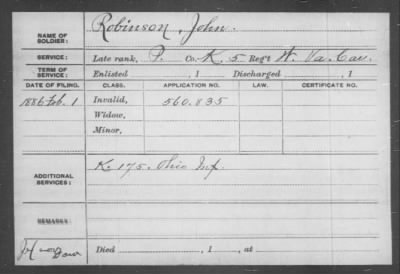 NAME OF SOLDIER: Robinson, John.
SERVICE: Late rank, P. Co. K, 5 Reg't W. Va. Cav.
TERM OF SERVICE: Enlisted , 1 Discharged , 1
DATE OF FILING. CLASS. APPLICATION NO. LAW. CERTIFICATE NO.
1886 Feb. 1 Invalid, 560.835
Widow,
Minor,
ADDITIONAL SERVICES: K. 175. Ohio Inf.
REMARKS:
Died , 1 , at